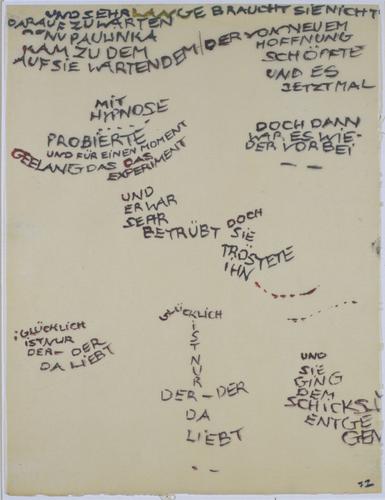 UND SEHR LANGE BRAUCHT SIE NICHT
DARAUF ZU WARTEN
PAULINKA
KAM ZU DEM
AUF SIE WARTENDEM / DER VON NEUEM
HOFFNUNG
SCHÖPFTE
UND ES
JETZT MAL
MIT
HYPNOSE
PROBIERTE
UND FÜR EINEN MOMENT
GEELANG DAS DAS
EXPERIMENT
DOCH DANN
WAR ES WIE-
DER VORBEI
UND
ER WAR
SEHR
BETRÜBT DOCH
SIE
TRÖSTETE
IHN
GLÜCKLICH
IST NUR
DER – DER
DA LIEBT
GLÜCKLICH
IST NUR
DER – DER
DA
LIEBT
UND
SIE
GING
DEM
SCHICKSAL
ENTGE
GEN